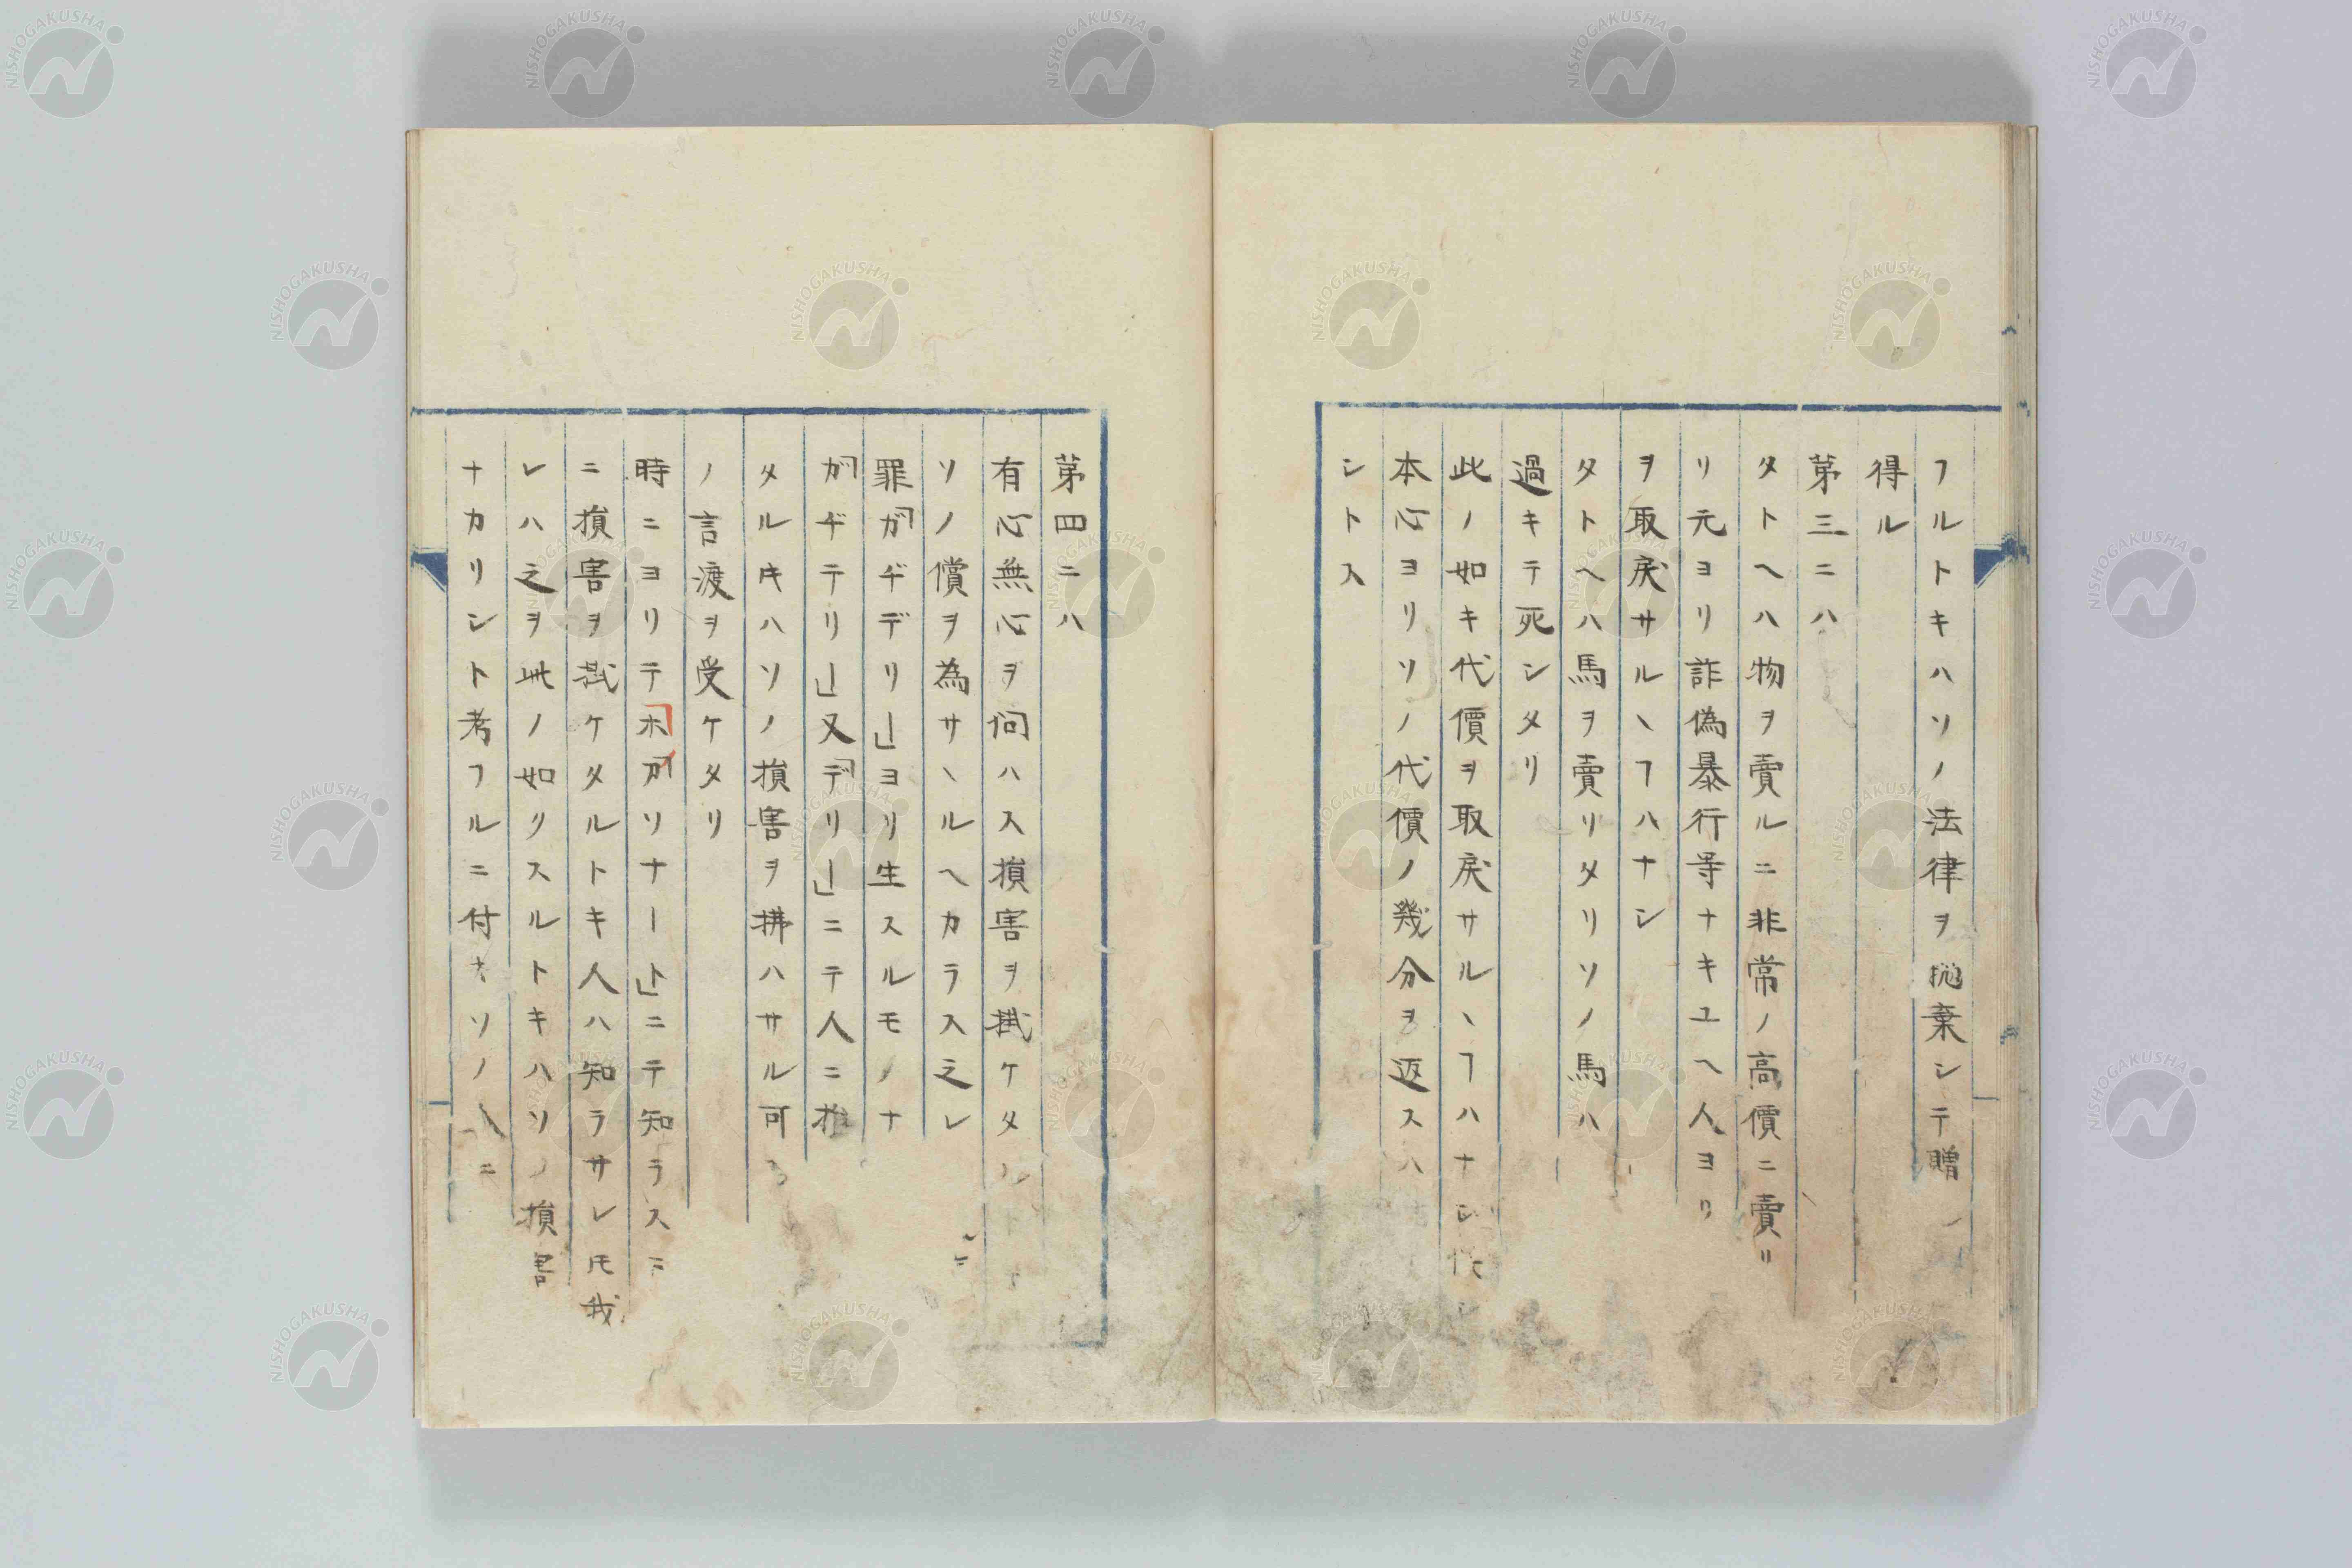 フルトキハソノ法律ヲ抛棄シテ贈
得ル
第三ニハ
タトヘハ物ヲ賣ルニ非常ノ高價ニ賣リ
リ元ヨリ詐偽暴行等ナキユヘ人ヨリ
ヲ取戻サルヽヿハナシ
タトヘハ馬ヲ賣リタリソノ馬ハ
過キテ死シタリ
此ノ如キ代價ヲ取戻サルヽヿハナシ
本心ヨリソノ代價ノ幾分ヲ返スハ
シトス
第四ニハ
有心無心ヲ問ハス損害ヲ掛ケタル
ソノ償ヲ為サヽルヘカラス之レ
罪「ガヂデリー」ヨリ生スルモノナ
「ガヂテリー」又「デリー」ニテ人ニ推
タル𪜈ハソノ損害ヲ拂ハサル可
ノ言渡ヲ受ケタリ
時ニヨリテ「ホ「ガソナート」ニテ知ラスニ
ニ損害ヲ掛ケタルトキ人ハ知ラサレ𪜈我
レハ之ヲ此ノ如クスルトキハソノ損害
ナカリシト考フルニ付キソノ
NISHOGAKUSHA